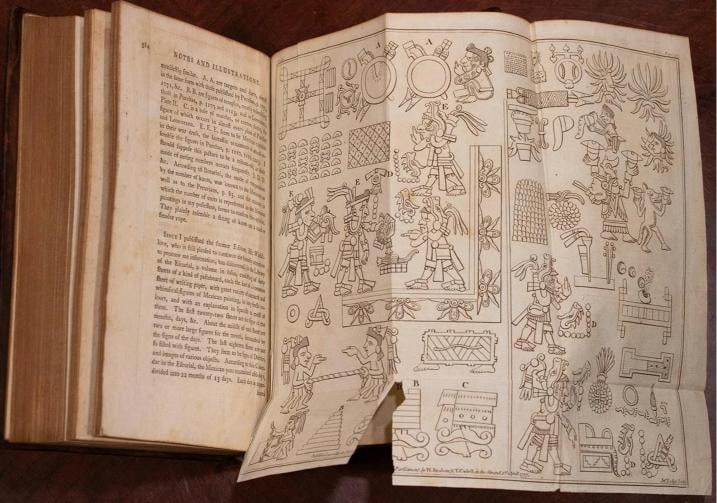 384 NOTES AND ILLUSTRATIONS.
similar. A. A. are targets and darts, almost
in the same form with those published by Purchas,
1071, &c. B. B. are figures of temples, nearly
those in Purchas, p. and in
Plate II. C. is a bale of mantles, or cotton
figure of which occurs in almost every plate of
and Lorenzana. E. E. E. seem to be Mexican
in their war dress, the fantastic ornaments of which
semble the figures in Purchas, p. 1110, 1111,
should suppose this picture to be a tribute roll, as
mode of noting numbers occurs frequently. D. D. D.
&c. According to Boturini, the mode of
by the number of knots, was known to the Mexicans as
well as to the Peruvians, p. 85, and the manner in
which the number of units is represented in the Mexican
paintings in my possession, seems to confirm this
They plainly resemble a string of knots on a cord or
slender rope.
SINCE I published the former Edition, Mr.
love, who is still pleased to continue his friendly
to procure me information, has discovered, in the Library
of the Escurial, a volume in folio, consisting of forty
sheets of a kind of pasteboard, each the size of a common
sheet of writing paper, with great variety of uncouth and
whimsical figures of Mexican painting, in very fresh
lours, and with an explanation in Spanish to most of
them. The first twenty-two sheets are the signs of the
months, days, &c. About the middle of each sheet are
two or more large figures for the month, surrounded by
the signs of the days. The last eighteen sheets are not
so filled with figures. They seem to be signs of Deities,
and images of various objects. According to this
dar in the Escurial, the Mexican year contained 286 days,
divided into 22 months of 13 days. Each day is
A
A
E
E
E
D
D
B
B
C
D
Published for W. Strahan, & T. Cadell, in the Strand